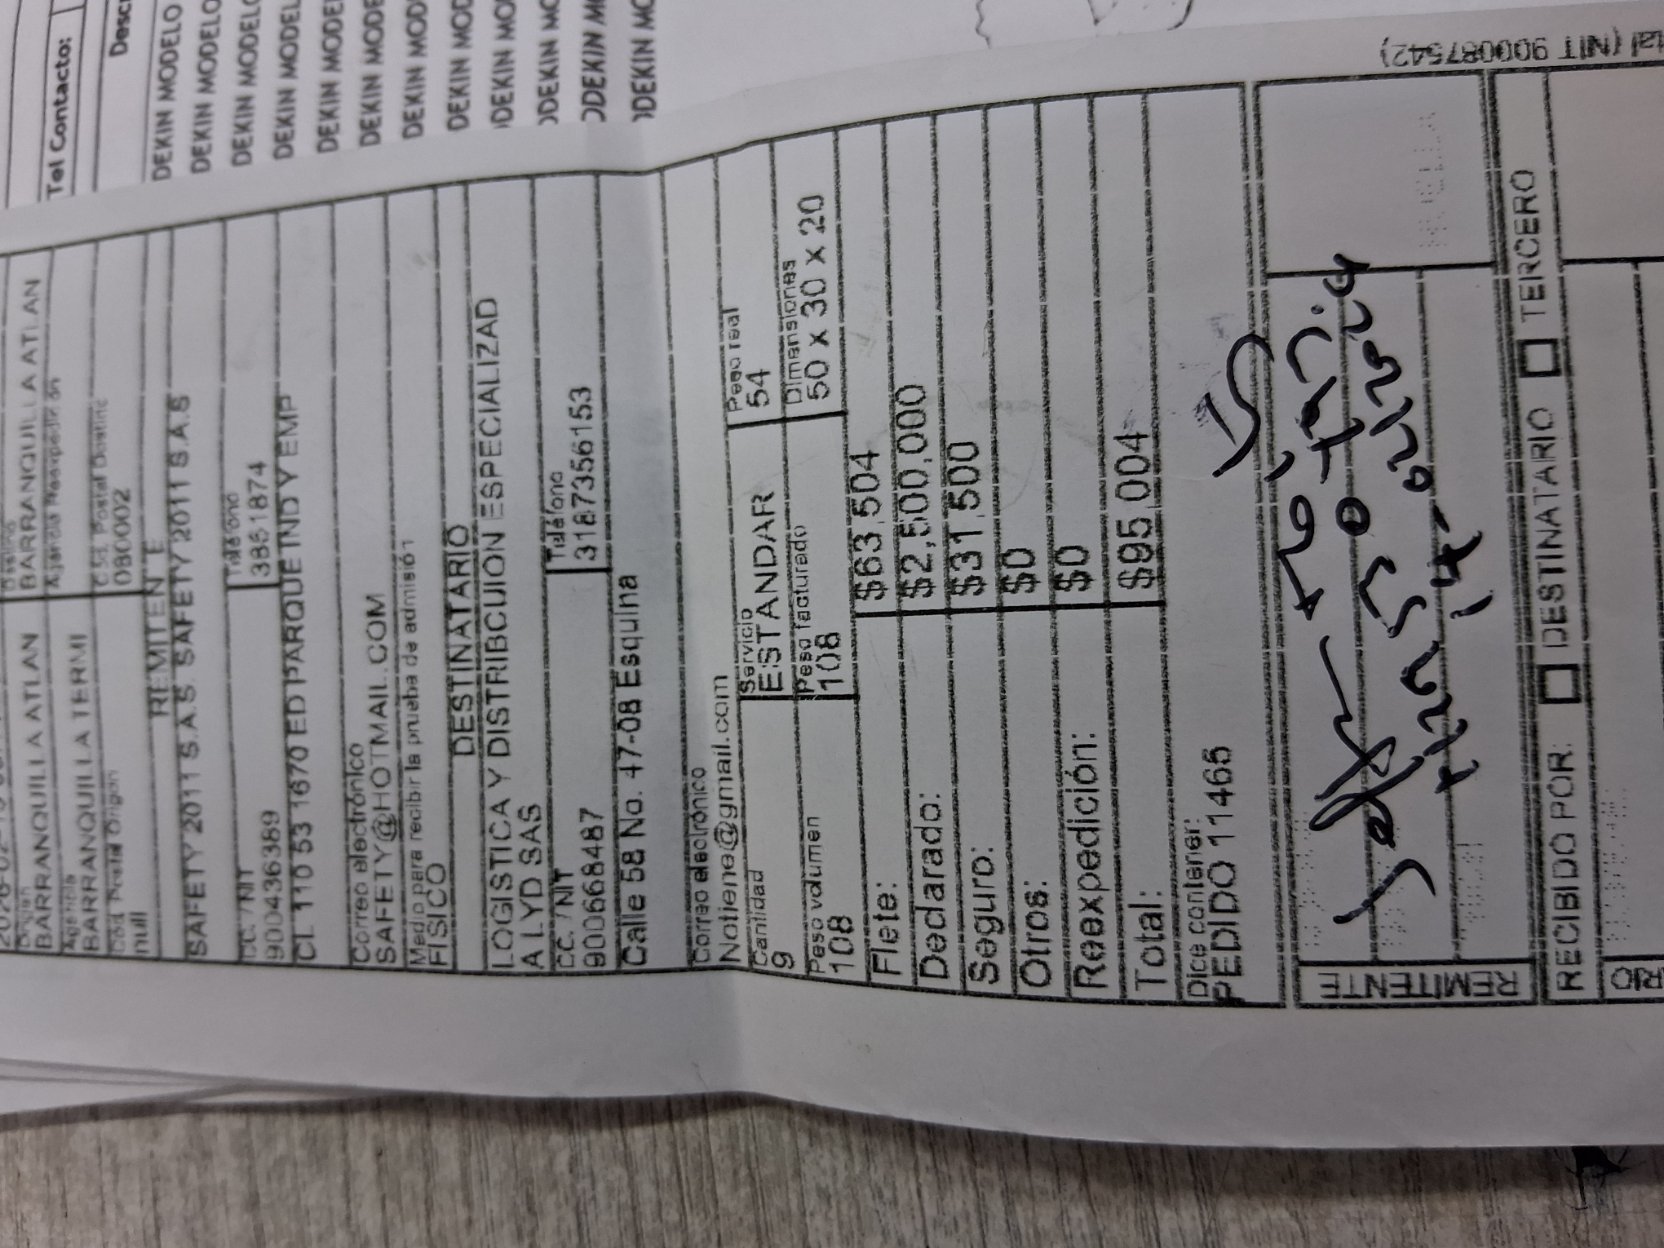 Tel Contacto:
DEKIN MODELO
DEKIN MODELO
DEKIN MODELO
DEKIN MODEL
DEKIN MODE
DEKIN MODE
DEKIN MOD
DEKIN MOD
DEKIN MO
DEKIN MO
DEKIN MO
DEKIN MO
BARRANQUILLA ATLAN
BARRANQUILLA ATLAN
Agencia
BARRANQUILLA TERMI
Cod. Postal Origen
null
Cod. Postal Destino
080002
REMITENTE
SAFETY 2011 S.A.S SAFETY 2011 S.A.S
CC. / NIT
900436389
Teléfono
3851874
CL 110 53 1670 ED PARQUE IND Y EMP
Correo electrónico
SAFETY@HOTMAIL.COM
Medio para recibir la prueba de admisión
FISICO
DESTINATARIO
LOGISTICA Y DISTRIBCUION ESPECIALIZAD
A LYD SAS
CC. / NIT
900668487
Teléfono
3187356153
Calle 58 No. 47-08 Esquina
Correo electrónico
Notiene@gmail.com
Cantidad
9
Servicio
ESTANDAR
Peso real
54
Peso volumen
108
Peso facturado
108
Dimensiones
50 x 30 x 20
Flete: $63,504
Declarado: $2,500,000
Seguro: $31,500
Otros: $0
Reexpedición: $0
Total: $95,004
Dice contener:
PEDIDO 11465
REMITENTE
RECIBIDO POR: DESTINATARIO TERCERO
tal (NIT 900087542)